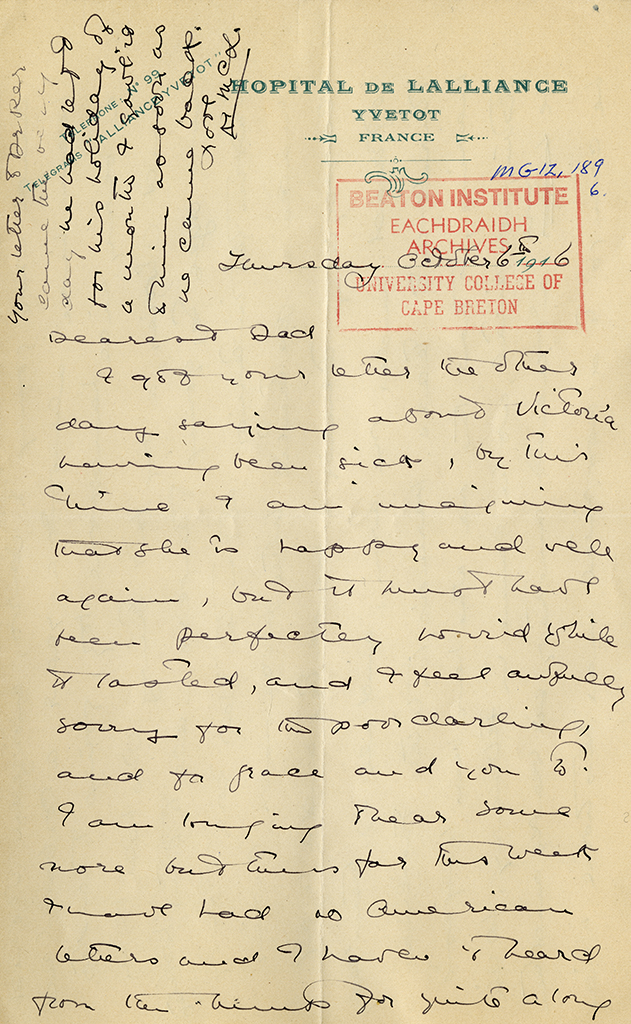 HOPITAL DE LALLIANCE
YVETOT
FRANCE
TELEPHONE N° 99
TELEGRAMS "ALLIANCE YVETOT"
MG12, 189
6.
BEATON INSTITUTE
EACHDRAIDH
ARCHIVES
UNIVERSITY COLLEGE OF
CAPE BRETON
Your letter to
came the very
day he had left
for his holiday of
a month
to him as soon as
he came back.
Love
Thursday October 6th 1916
Dearest Dad
I got your letter the other
day saying about Victoria
having been sick, by this
time I am imagining
that she is happy and well
again, but it must have
been perfectly horrid while
it lasted, and I feel awfully
sorry for the poor darling,
and for Grace and you to.
I am longing to hear some
more but thus far this week
I have had no American
letters and I haven't heard
from the for quite a long